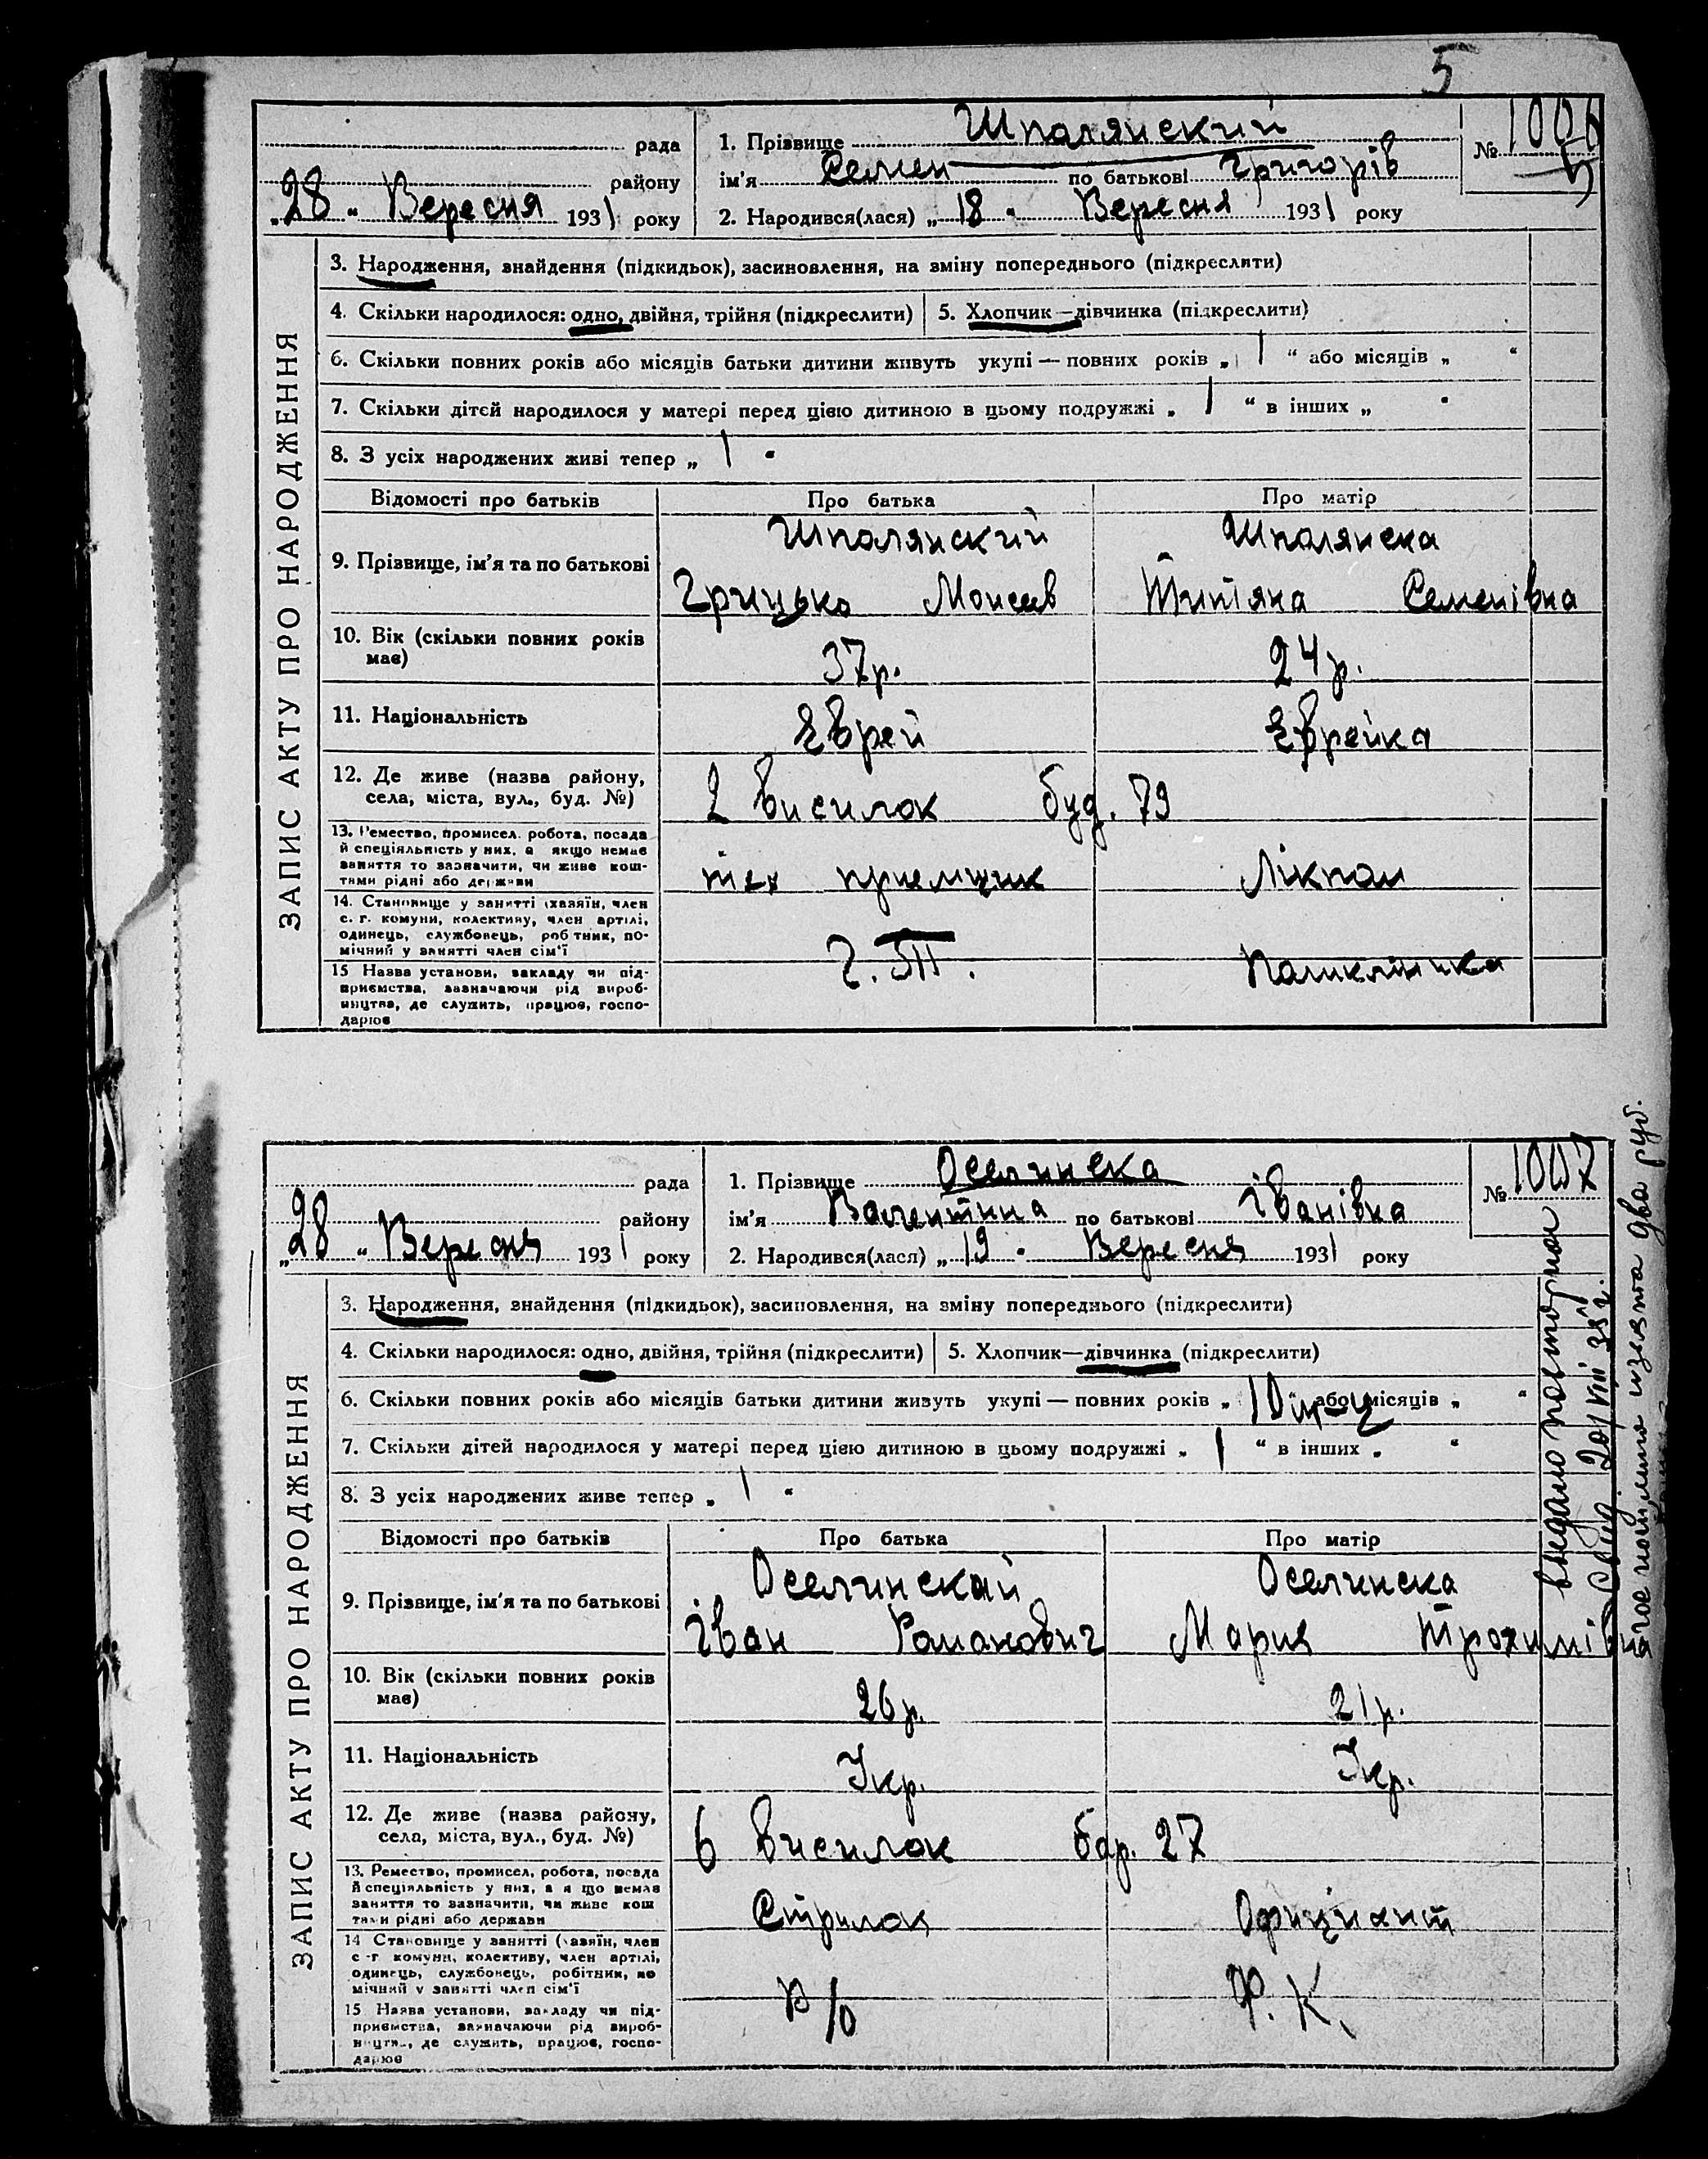 5
рада
1. Прізвище Шполянский
№ 1006
району
ім'я Семен по батькові Григорів
5
„28" Вересня 1931 року
2. Народився(лася) „18" Вересня 1931 року
ЗАПИС АКТУ ПРО НАРОДЖЕННЯ
3. Народження, знайдення (підкидьок), засиновлення, на зміну попереднього (підкреслити)
4. Скільки народилося: одно, двійня, трійня (підкреслити)
5. Хлопчик—дівчинка (підкреслити)
6. Скільки повних років або місяців батьки дитини живуть укупі — повних років „ 1 “ або місяців „ “
7. Скільки дітей народилося у матері перед цією дитиною в цьому подружжі „ 1 “ в інших „ “
8. З усіх народжених живі тепер „ 1 “
Відомості про батьків
Про батька
Про матір
9. Прізвище, ім'я та по батькові
Шполянский
Грицько Моисеів
Шполянска
Семенівна
10. Вік (скільки повних років
має)
37р.
24р.
11. Національність
Еврей
Еврейка
12. Де живе (назва району,
села, міста, вул., буд. №)
2 висилок буд. 79
13. Ремество, промисел. робота, посада
й спеціяльність у них, а якщо немає
заняття то зазначити, чи живе кош-
тами рідні або держави
тех приемщик
Лікпом
14. Становище у занятті (хазяїн, член
с. г. комуни, колективу, член артілі,
одинець, службовець, робітник, по-
мічний у занятті член сім'ї
15 Назва установи, закладу чи під-
приємства, зазначаючи рід вироб-
ництва, де служить, працює, госпо-
дарює
Поликлиника
рада
1. Прізвище Оселинска
№ 1007
району
ім'я Валентина по батькові Іванівна
„28" Вересня 1931 року
2. Народився(лася) „19" Вересня 1931 року
ЗАПИС АКТУ ПРО НАРОДЖЕННЯ
3. Народження, знайдення (підкидьок), засиновлення, на зміну попереднього (підкреслити)
4. Скільки народилося: одно, двійня, трійня (підкреслити)
5. Хлопчик—дівчинка (підкреслити)
6. Скільки повних років або місяців батьки дитини живуть укупі — повних років „ 10 м-ц “ або місяців „ “
7. Скільки дітей народилося у матері перед цією дитиною в цьому подружжі „ 1 “ в інших „ “
8. З усіх народжених живе тепер „ 1 “
Відомості про батьків
Про батька
Про матір
9. Прізвище, ім'я та по батькові
Оселинский
Іван Романович
Оселинска
Мария Трохимівна
10. Вік (скільки повних років
має)
26р.
21р.
11. Національність
Укр.
Укр.
12. Де живе (назва району,
села, міста, вул., буд. №)
6 висилок бар. 27
13. Ремество, промисел, робота, посада
й спеціяльність у них, а якщо немає
заняття то зазначити, чи живе кош
тами рідні або держави
Стрилок
Официянт
14 Становище у занятті (хазяїн, член
с-г комуни, колективу, член артілі,
одинець, службовець, робітник, по
мічний у занятті член сім'ї
15 Назва установи, закладу чи під-
приємства, зазначаючи рід вироб-
ництва, де служить, працює, госпо-
дарює
В/о
Ф. К.
выдано повторное
свид. 20/VIII 35 г.
два руб.